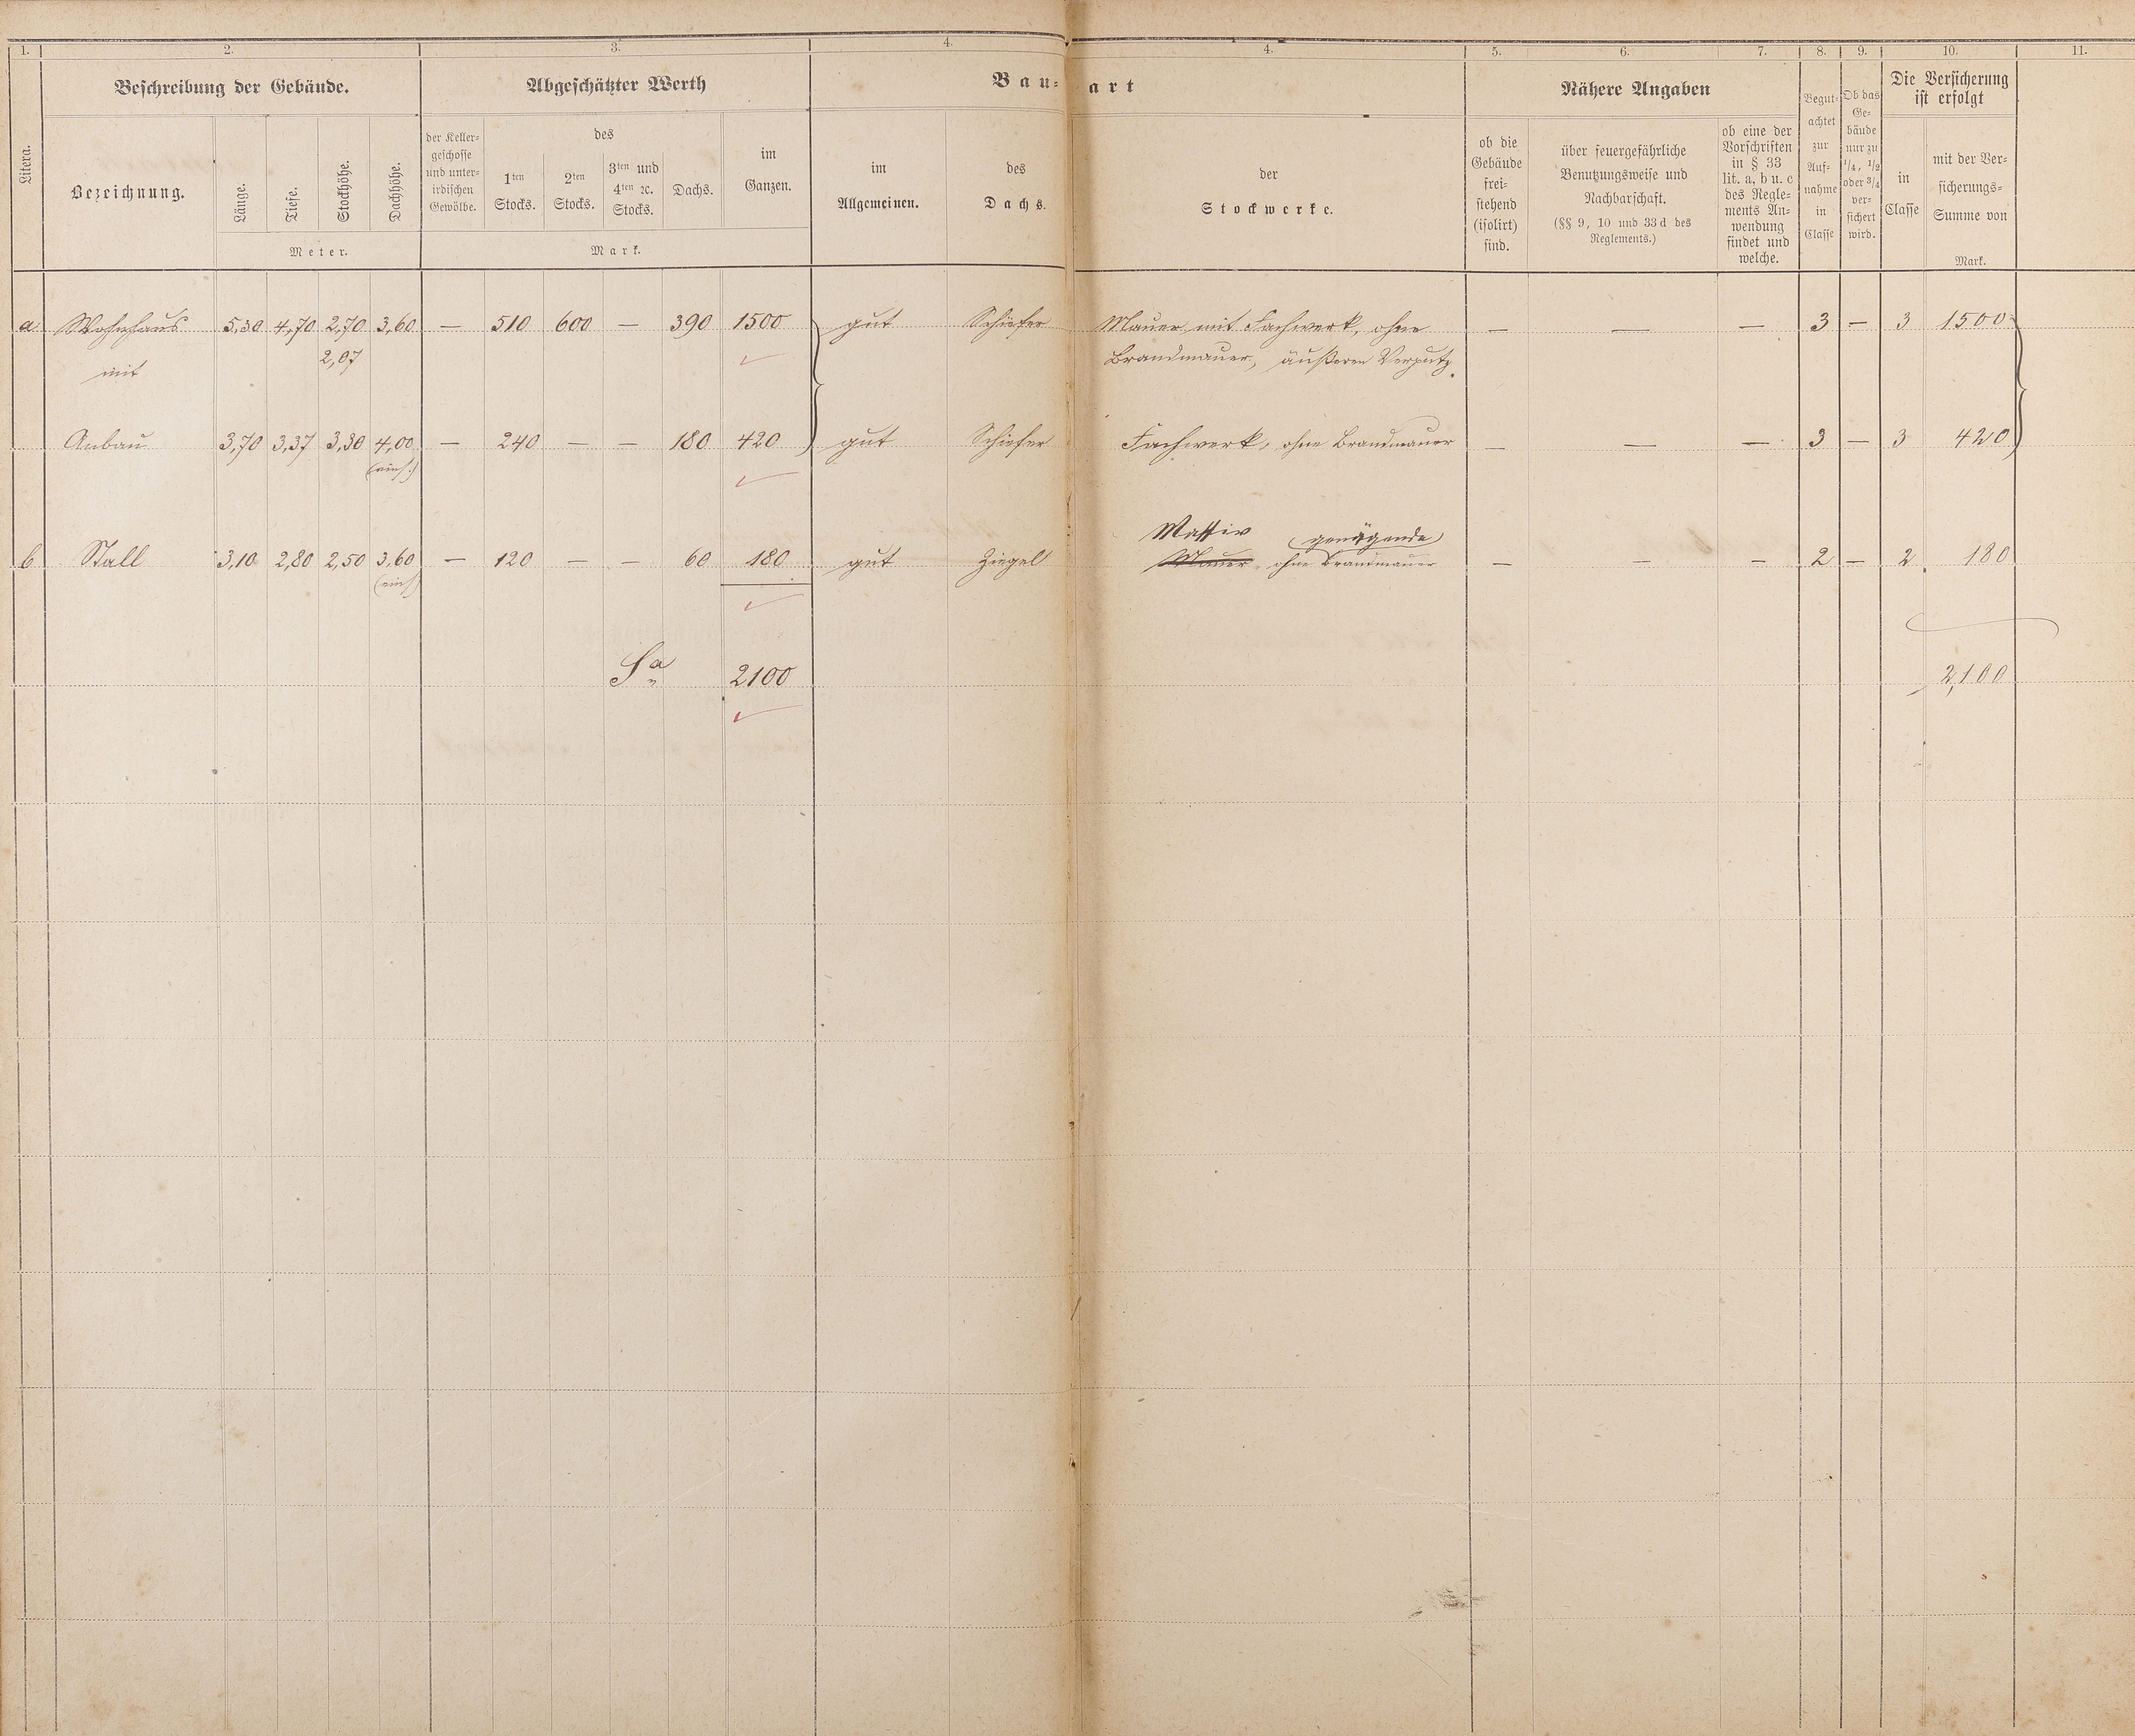 1. 2. 3. 4. 4. 5. 6. 7. 8. 9. 10. 11.
Litera.
Beschreibung der Gebäude.
Bezeichnung.
Länge.
Tiefe.
Stockhöhe.
Dachhöhe.
Meter.
Abgeschätzter Werth
der Keller-
geschosse
und unter-
irdischen
Gewölbe.
des
1ten
Stocks.
2ten
Stocks.
3ten und
4ten ꝛc.
Stocks.
Dachs.
im
Ganzen.
Mark.
Bau-art
im
Allgemeinen.
des
Dachs.
der
Stockwerke.
Nähere Angaben
ob die
Gebäude
frei-
stehend
(isolirt)
sind.
über feuergefährliche
Benutzungsweise und
Nachbarschaft.
(§§ 9, 10 und 33 d des
Reglements.)
ob eine der
Vorschriften
in § 33
lit. a, b u. c
des Regle-
ments An-
wendung
findet und
welche.
Begut-
achtet
zur
Auf-
nahme
in
Classe
Ob das
Ge-
bäude
nur zu
1/4, 1/2
oder 3/4
ver-
sichert
wird.
Die Versicherung
ist erfolgt
in
Classe
mit der Ver-
sicherungs-
Summe von
Mark.
a Wohnhaus 5,30 4,70 2,70 3,60 — 510 600 — 390 1500 gut Schiefer Mauer mit Fachwerk, ohne — — — 3 — 3 1500
mit 2,07 Brandmauer, äußeren Verputz.
Anbau 3,70 3,37 3,30 4,00 — 240 — — 180 420 gut Schiefer Fachwerk, ohne Brandmauer — — — 3 — 3 420
(einf.)
Massiv genügende
b Stall 3,10 2,80 2,50 3,60 — 120 — — 60 180 gut Ziegel Mauer ohne Brandmauer — — — 2 — 2 180
(einf)
Sa 2100 2,100